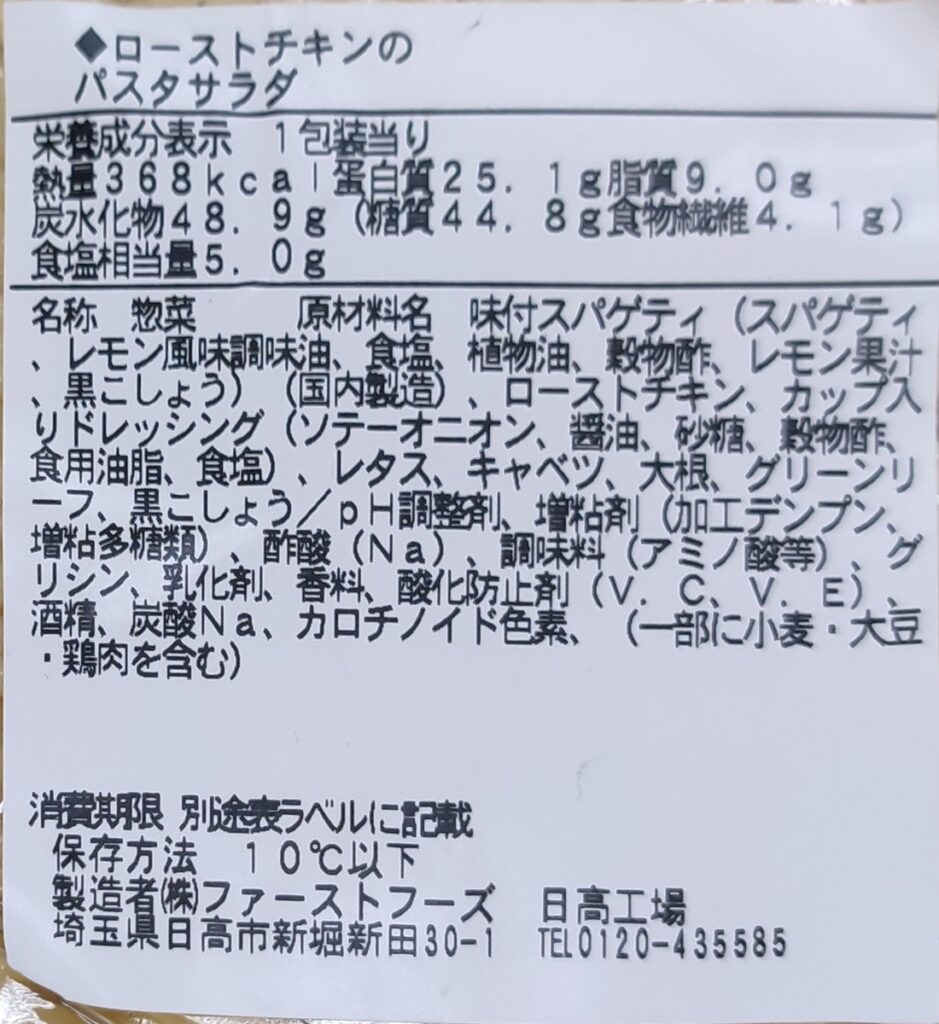 ◆ローストチキンの
パスタサラダ
栄養成分表示 1包装当り
熱量368kcal蛋白質25.1g脂質9.0g
炭水化物48.9g(糖質44.8g食物繊維4.1g)
食塩相当量5.0g
名称 惣菜 原材料名 味付スパゲティ(スパゲティ
、レモン風味調味油、食塩、植物油、穀物酢、レモン果汁
、黒こしょう)(国内製造)、ローストチキン、カップ入
りドレッシング(ソテーオニオン、醤油、砂糖、穀物酢、
食用油脂、食塩)、レタス、キャベツ、大根、グリーンリ
ーフ、黒こしょう/pH調整剤、増粘剤(加工デンプン、
増粘多糖類)、酢酸(Na)、調味料(アミノ酸等)、グ
リシン、乳化剤、香料、酸化防止剤(V.C、V.E)、
酒精、炭酸Na、カロチノイド色素、(一部に小麦・大豆
・鶏肉を含む)
消費期限 別途表ラベルに記載
保存方法 10℃以下
製造者㈱ファーストフーズ 日高工場
埼玉県日高市新堀新田30-1 TEL0120-435585